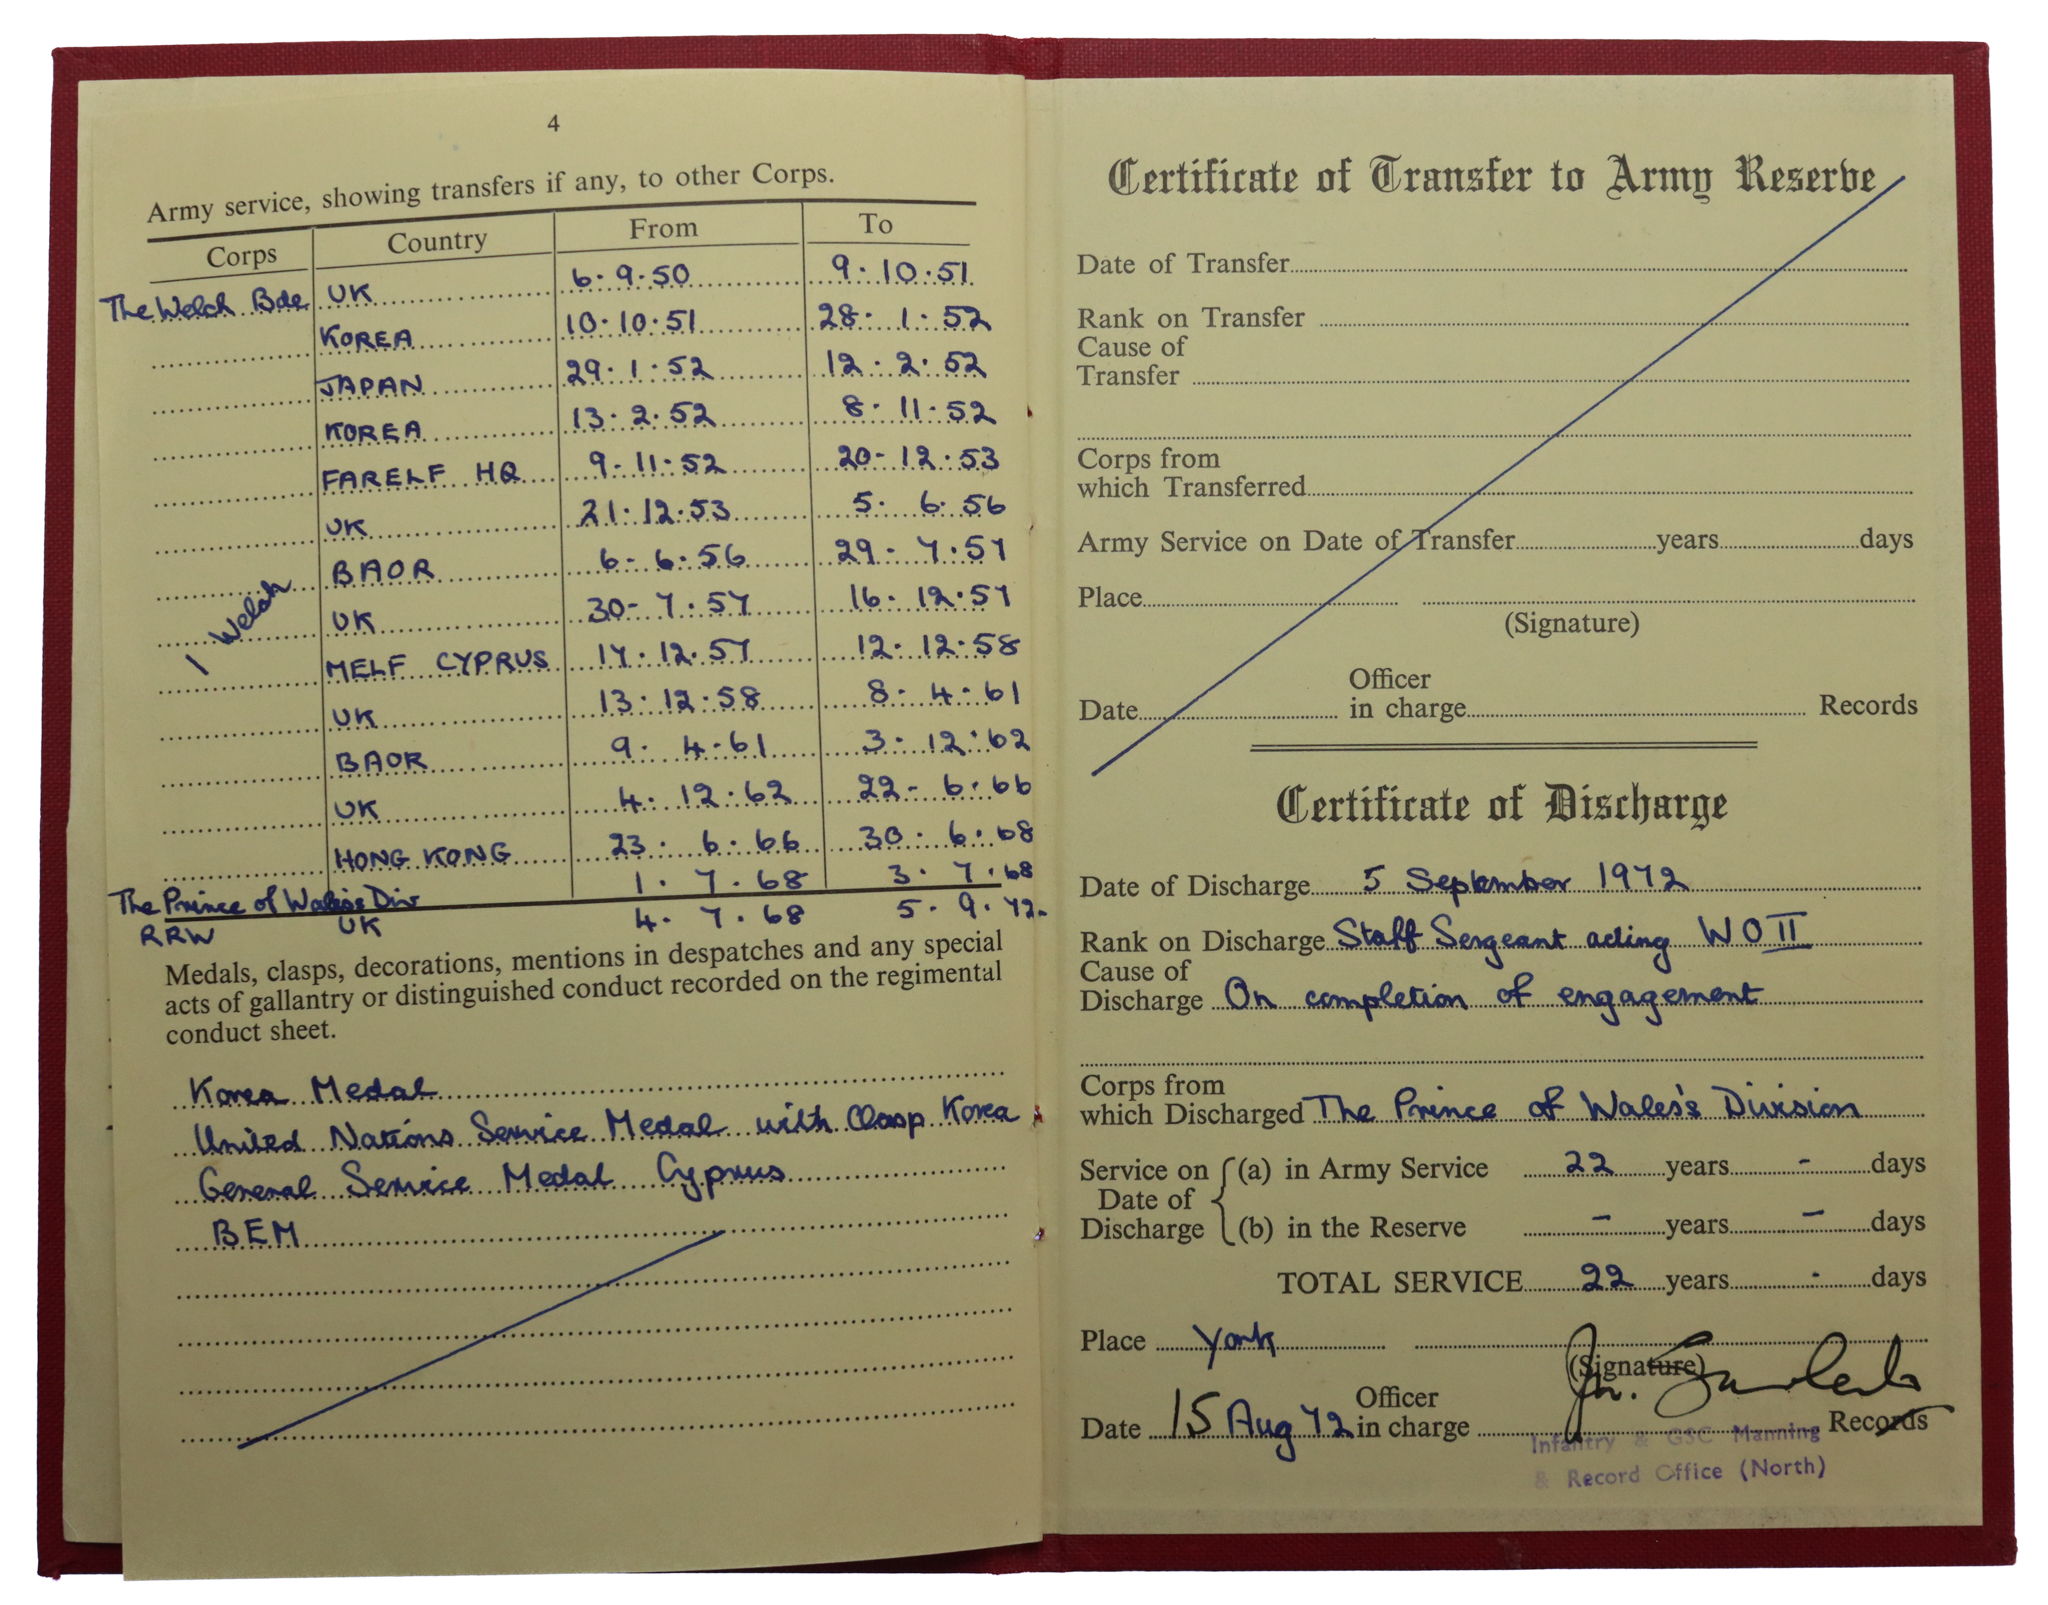 4
Army service, showing transfers if any, to other Corps.
Corps Country From To
The Welch Bde UK 6.9.50 9.10.51
KOREA 10.10.51 28.1.52
JAPAN 29.1.52 12.2.52
KOREA 13.2.52 8.11.52
FARELF HQ 9-11.52 20-12.53
UK 21.12.53 5.6.56
BAOR 6-6.56 29-7.57
1 Welch UK 30-7.57 16.12.57
MELF CYPRUS 17.12.57 12.12.58
UK 13.12.58 8.4.61
BAOR 9.4.61 3.12.62
UK 4.12.62 22-6.66
HONG KONG 23.6.66 30.6.68
The Prince of Wales's Div 1.7.68 3.7.68
RRW UK 4.7.68 5.9.72.
Medals, clasps, decorations, mentions in despatches and any special
acts of gallantry or distinguished conduct recorded on the regimental
conduct sheet.
Korea Medal
United Nations Service Medal with Clasp Korea
General Service Medal Cyprus
BEM
Certificate of Transfer to Army Reserve
Date of Transfer
Rank on Transfer
Cause of
Transfer
Corps from
which Transferred
Army Service on Date of Transfer years days
Place
(Signature)
Officer
Date in charge Records
Certificate of Discharge
Date of Discharge 5 September 1972
Rank on Discharge Staff Sergeant acting WO II
Cause of
Discharge On completion of engagement
Corps from
which Discharged The Prince of Wales's Division
Service on (a) in Army Service 22 years - days
Date of
Discharge (b) in the Reserve - years - days
TOTAL SERVICE 22 years - days
Place York
(Signature)
Officer
Date 15 Aug 72 in charge Records
Infantry & GSC Manning
& Record Office (North)